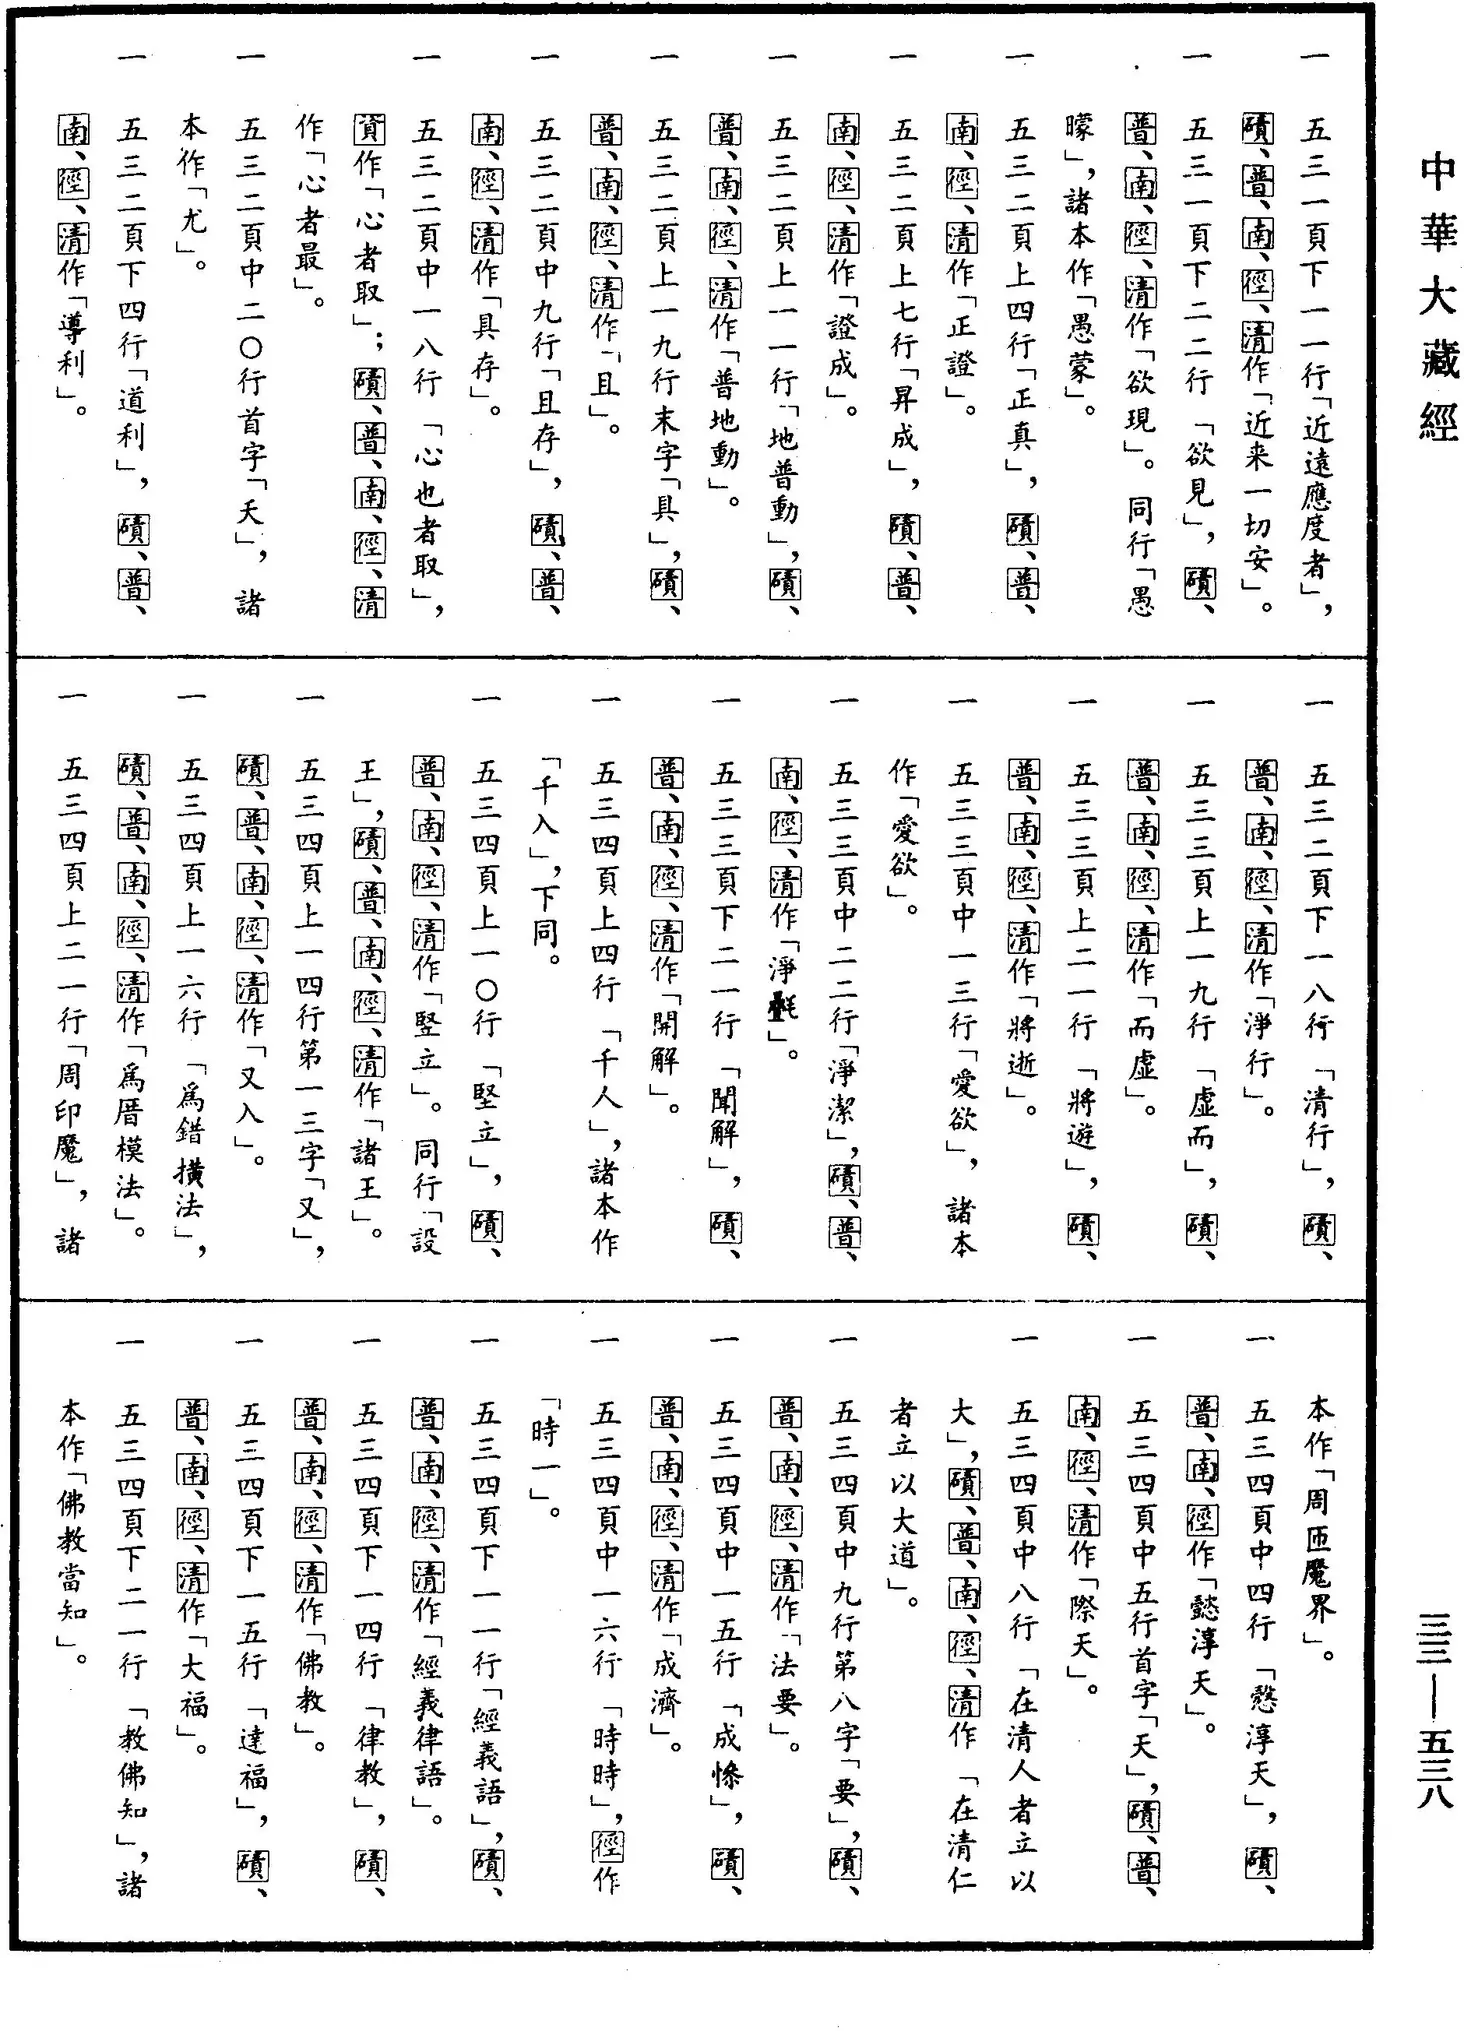 中華大藏經
一 五三一頁下一一行「近遠應度者」，
磧、普、南、徑、清作「近来一切安」。
一 五三一頁下二二行「欲見」，磧、
普、南、徑、清作「欲現」。同行「愚
矇」，諸本作「愚蒙」。
一 五三二頁上四行「正真」，磧、普、
南、徑、清作「正證」。
一 五三二頁上七行「昇成」，磧、普、
南、徑、清作「證成」。
一 五三二頁上一一行「地普動」，磧、
普、南、徑、清作「普地動」。
一 五三二頁上一九行末字「具」，磧、
普、南、徑、清作「且」。
一 五三二頁中九行「且存」，磧、普、
南、徑、清作「具存」。
一 五三二頁中一八行「心也者取」，
資作「心者取」；磧、普、南、徑、清
作「心者最」。
一 五三二頁中二〇行首字「天」，諸
本作「尤」。
一 五三二頁下四行「道利」，磧、普、
南、徑、清作「導利」。
一 五三二頁下一八行「清行」，磧、
普、南、徑、清作「淨行」。
一 五三三頁上一九行「虛而」，磧、
普、南、徑、清作「而虛」。
一 五三三頁上二一行「將遊」，磧、
普、南、徑、清作「將逝」。
一 五三三頁中一三行「愛欲」，諸本
作「愛欲」。
一 五三三頁中二二行「淨潔」，磧、普、
南、徑、清作「淨㲲」。
一 五三三頁下二一行「聞解」，磧、
普、南、徑、清作「開解」。
一 五三四頁上四行「千人」，諸本作
「千入」，下同。
一 五三四頁上一〇行「堅立」，磧、
普、南、徑、清作「竪立」。同行「設
王」，磧、普、南、徑、清作「諸王」。
一 五三四頁上一四行第一三字「又」，
磧、普、南、徑、清作「又入」。
一 五三四頁上一六行「爲錯摸法」，
磧、普、南、徑、清作「爲厝模法」。
一 五三四頁上二一行「周印魔」，諸
本作「周匝魔界」。
一 五三四頁中四行「慜淳天」，磧、
普、南、徑作「懿淳天」。
一 五三四頁中五行首字「天」，磧、普、
南、徑、清作「際天」。
一 五三四頁中八行「在清人者立以
大」，磧、普、南、徑、清作「在清仁
者立以大道」。
一 五三四頁中九行第八字「要」，磧、
普、南、徑、清作「法要」。
一 五三四頁中一五行「成慘」，磧、
普、南、徑、清作「成濟」。
一 五三四頁中一六行「時時」，徑作
「時一」。
一 五三四頁下一一行「經義語」，磧、
普、南、徑、清作「經義律語」。
一 五三四頁下一四行「律教」，磧、
普、南、徑、清作「佛教」。
一 五三四頁下一五行「達福」，磧、
普、南、徑、清作「大福」。
一 五三四頁下二一行「教佛知」，諸
本作「佛教當知」。
三三—五三八